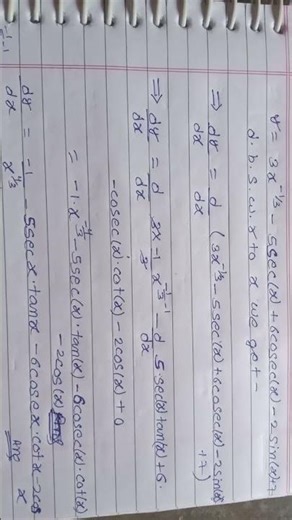 y = 3x^{-1/3} - 5sec(x) + 6cosec(x) - 2sin(x)+7
d.b.s.w.r. to x we get -
⇒ dy/dx = d/dx (3x^{-1/3} - 5sec(x) + 6cosec(x) - 2sin(x) +7)
⇒ dy/dx = d/dx 3x - 1/3 x^{-1/3 - 1} - d/dx 5.sec(x)tan(x) + 6.
- cosec(x).cot(x) - 2cos(x) + 0
= -1.x^{-4/3} - 5sec(x).tan(x) - 6cosec(x).cot(x)
- 2cos(x)
dy/dx = -1/x^{4/3} - 5secx.tanx - 6cosecx.cotx - 2cosx
Ans